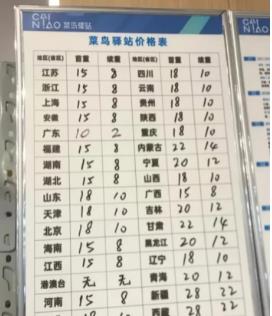 CAI NIAO 菜鸟驿站
菜鸟驿站价格表
地区(省区) 首重 续重 地区(省区) 首重 续重
江苏 15 8 四川 18 10
浙江 15 8 云南 18 10
上海 15 8 贵州 18 10
安徽 15 8 陕西 18 10
广东 10 2 重庆 18 10
福建 15 8 内蒙古 22 14
湖南 15 8 宁夏 20 12
湖北 15 8 山西 18 10
山东 18 10 广西 15 8
天津 18 10 吉林 20 12
北京 18 10 甘肃 22 14
海南 15 8 黑龙江 20 12
江西 15 8 辽宁 18 10
港澳台 无 无 青海 20 12
河南 15 8 新疆 28 22
西藏 28 22